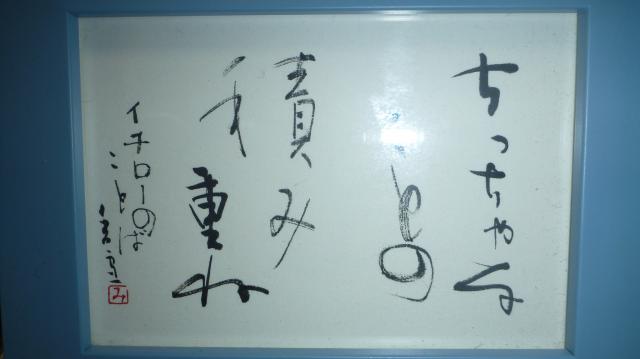 ちっちゃな
ことの
積み
重ね
イチローの
ことば
み